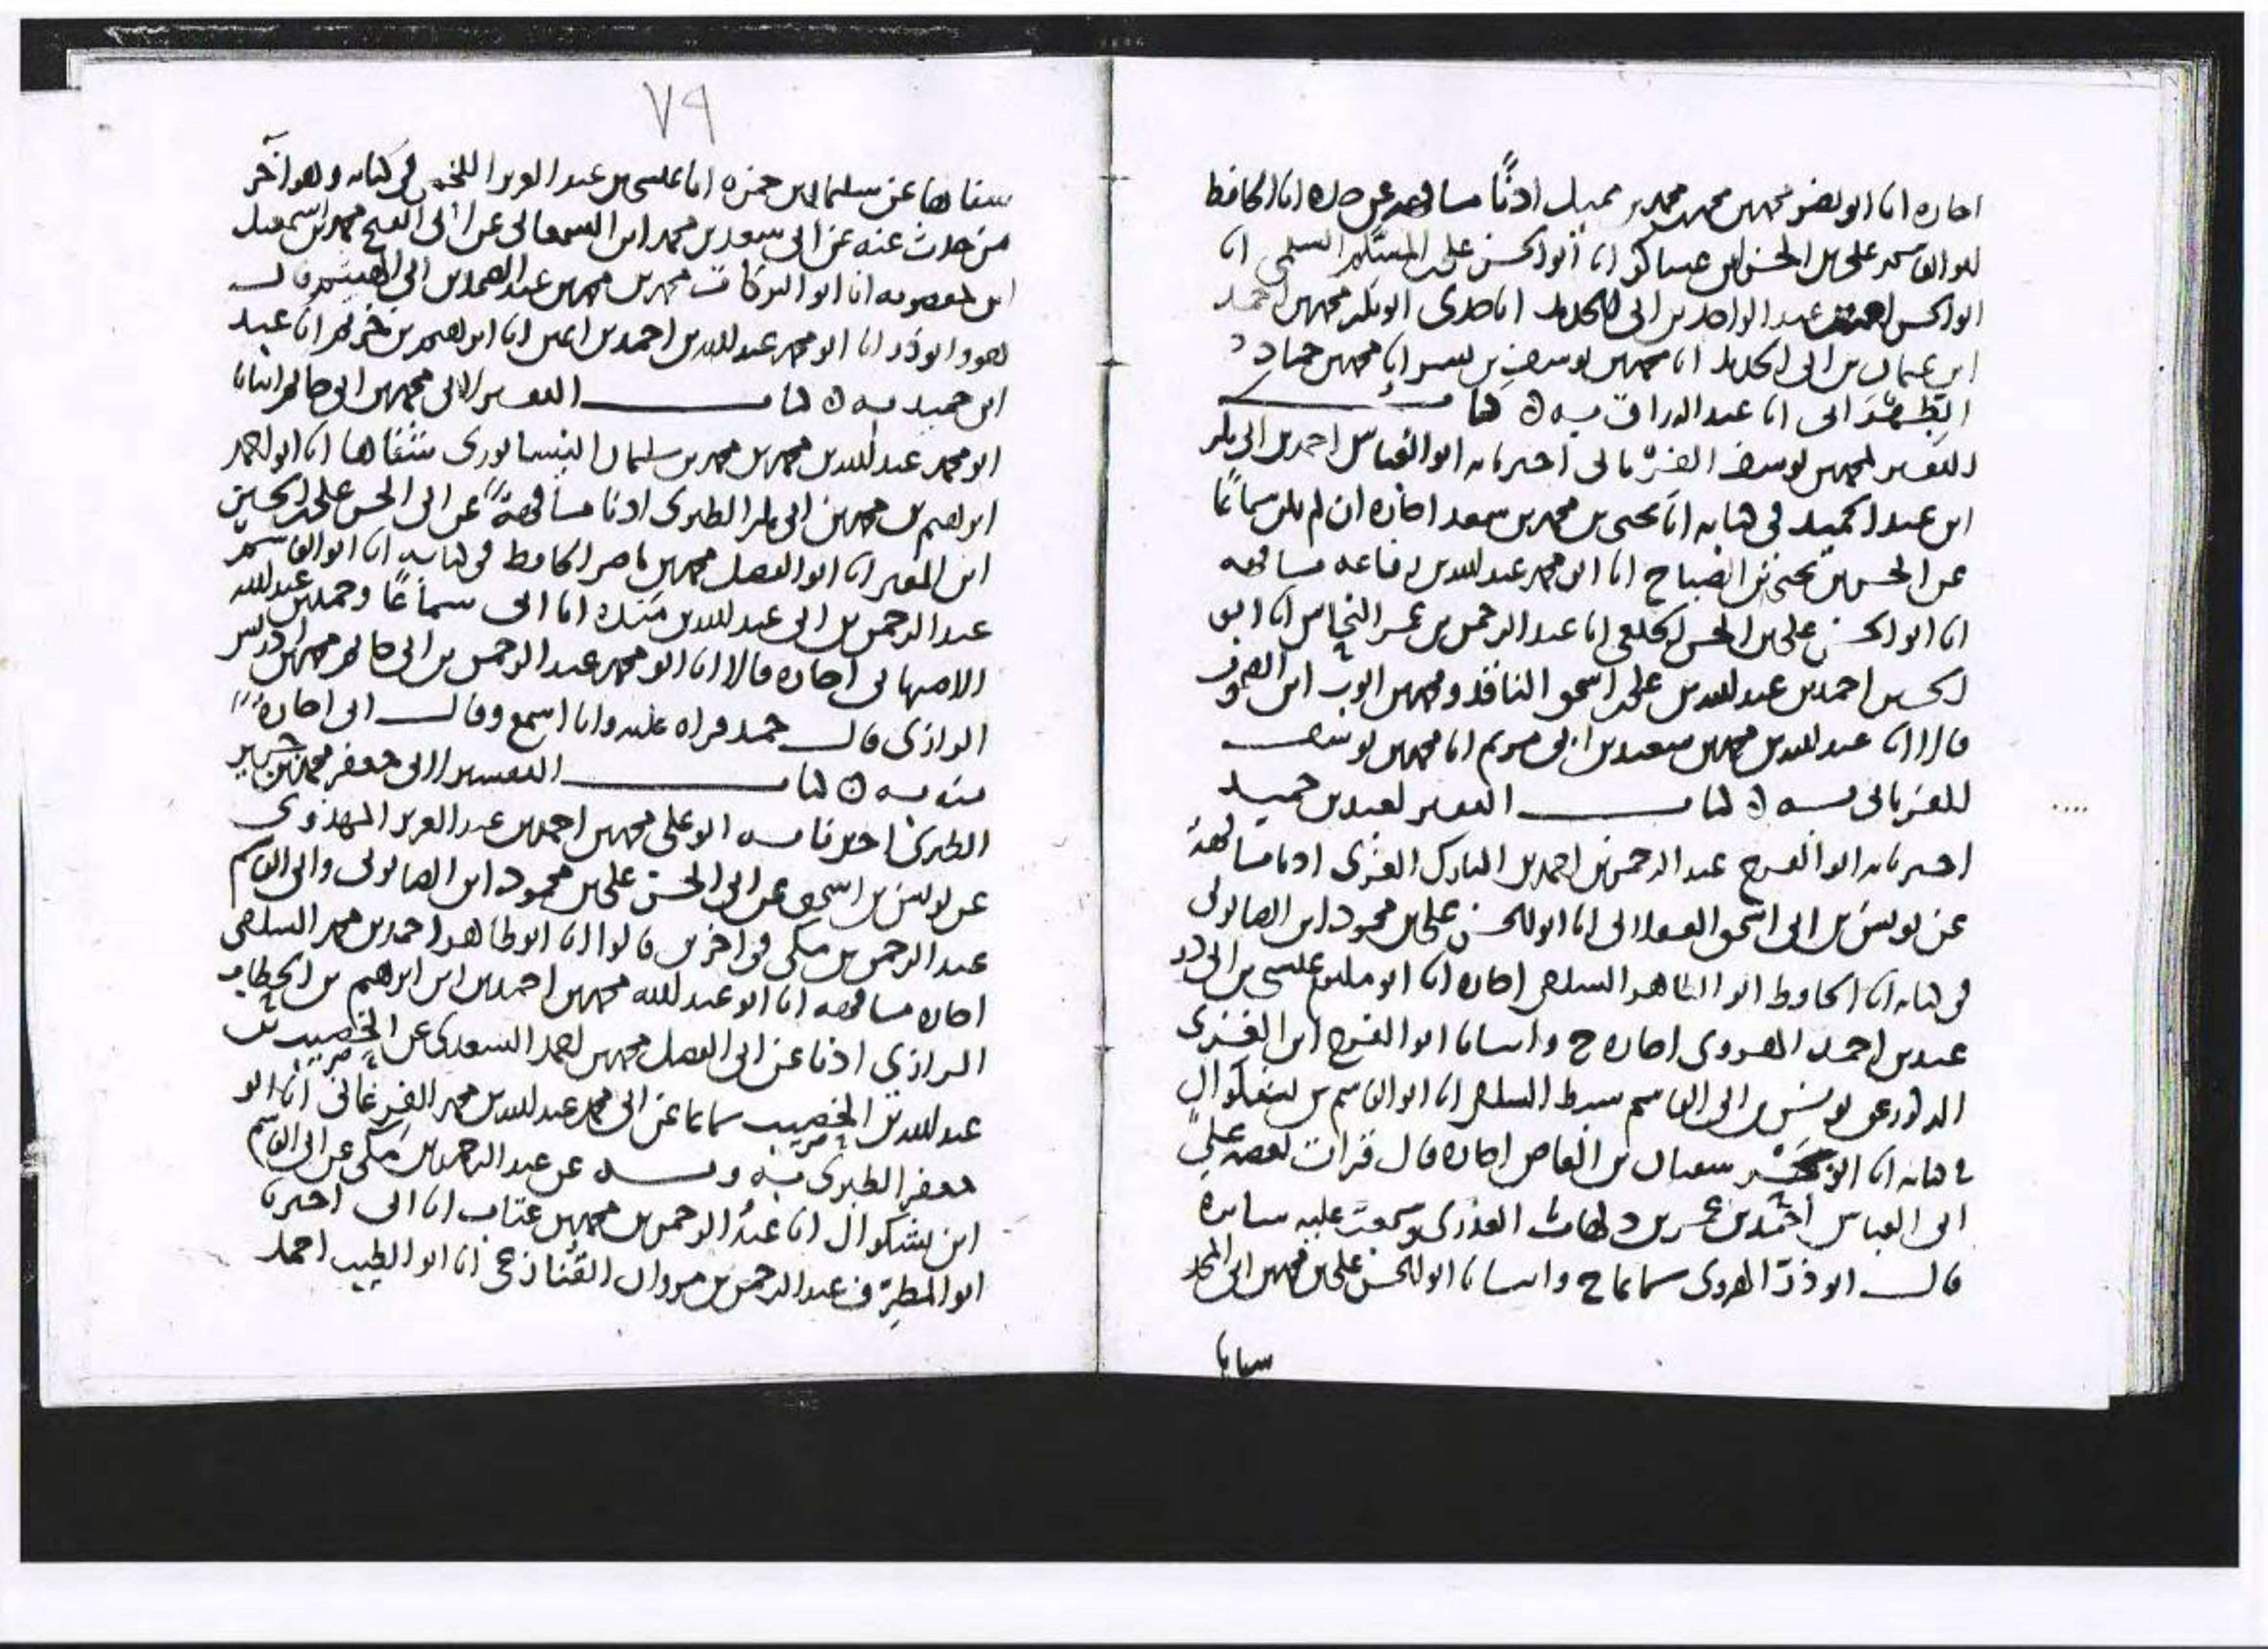 اجازه انا ابو نصر محمد بن محمد بن محمد بن مميل اذنًا مشافهه عن جده انا الحافظ
ابو القاسم على بن الحسن ابن عساكر انا ابو الحسن على بن المسلم السلمى انا
ابو الحسن احمد بن عبد الواحد بن ابى الحديد انا جدى ابو بكر محمد بن احمد
ابن عثمان بن ابى الحديد انا محمد بن يوسف بن بشر انا محمد بن حماد
الطِّهْرَانى انا عبد الرزاق به ه كتاب
التفسير لمحمد بن يوسف الفريابى اخبرنا به ابو العباس احمد بن ابى بكر
ابن عبد الحميد فى كتابه انا يحيى بن محمد بن سعد اجازه ان لم يكن سماعًا
عن الحسن بن يحيى بن الصباح انا ابو محمد عبد الله بن رفاعه مشافهه
انا ابو الحسن على بن الحسن الخلعى انا عبد الرحمن بن عمر النحاس انا ابو
الحسن احمد بن عبد الله بن على بن اسحق الناقد ومحمد بن ايوب ابن الصموت
قالا انا عبد الله بن محمد بن سعيد بن ابى مريم انا محمد بن يوسف
الفريابى به ه كتاب التفسير لعبد بن حميد
اخبرنا به ابو الفرج عبد الرحمن بن احمد بن المبارك الغزى اذنا مشافهة
عن يونس بن ابى اسحق العسقلانى انا ابو الحسن على بن محمود ابن الصابونى
فى كتابه انا الحافظ ابو الطاهر السلفى اجازه انا ابو مكتوم عيسى بن ابى ذر
عبد بن احمد الهروى اجازه ح وانبانا ابو الفرج ابن الغزى
المذكور عن يونس عن ابى القاسم سبط السلفى انا ابو القاسم بن بشكوال
فى كتابه انا ابو بحر سفيان بن العاص اجازه قال قرات بعضه على
ابى العباس احمد بن عمر بن دلهاث العذرى وسمعت عليه سائره
قال انا ابو ذرّ الهروى سماعا ح وانبانا ابو الحسن على بن محمد ابن ابى المجد
شفاها
٧٩
شفاها عن سليمان بن حمزه انا عيسى بن عبد العزيز اللخمى فى كتابه وهو آخر
من حدث عنه عن ابى سعد بن محمد ابن السمعانى عن ابى الفتح محمد بن اسمعيل
ابن معصويه انا ابو البركات محمد بن محمد بن عبد الصمد بن ابى الهيثم قال
هو وابو ذر انا ابو محمد عبد الله بن احمد بن اعين انا ابراهيم بن خريم انا عبد
ابن حميد به ه كتاب التفسير لابى محمد بن ابى حاتم انبانا
ابو محمد عبد الله بن محمد بن محمد بن سليمان النيسابورى شفاها انا ابو احمد
ابراهيم بن محمد بن ابى بكر الطبرى اذنا مشافهة عن ابى الحسن على بن الحسين
ابن المقير انا ابو الفضل محمد بن ناصر الحافظ فى كتابه انا ابو القاسم
عبد الرحمن بن ابى عبد الله بن منده انا ابى سماعًا وحمد بن عبد الله
الاصبهانى اجازه قالا انا ابو محمد عبد الرحمن بن ابى حاتم محمد بن ادريس
الرازى قال حمد قراه عليه وانا اسمع وقال ابى اجازة
منه به ه كتاب التفسير لابى جعفر محمد بن جرير
الطبرى اخبرنا به ابو على محمد بن احمد بن عبد العزيز المهدوى
عن يونس بن اسحق عن ابى الحسن على بن محمود ابن الصابونى وابى القاسم
عبد الرحمن بن مكى فى اخرين قالوا انا ابو طاهر احمد بن محمد السلفى
اجازه مشافهه انا ابو عبد الله محمد بن احمد بن ابراهيم بن الحطاب
الرازى اذنا عن ابى الفضل محمد بن احمد السعدى عن الخصيب بن
عبد الله بن الخصيب سماعا عن ابى محمد عبد الله بن محمد الفرغانى انا ابو
جعفر الطبرى به وبه عن عبد الرحمن بن مكى عن ابى القاسم
ابن بشكوال انا عبد الرحمن بن محمد بن عتاب انا ابى اخبرنا
ابو المطرّف عبد الرحمن بن مروان القُنازعى انا ابو الطيب احمد